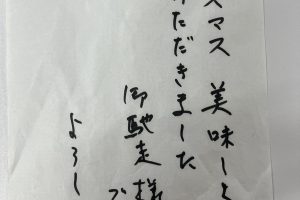 スマス 美味しく
ただきました
御馳走様
で
よろし